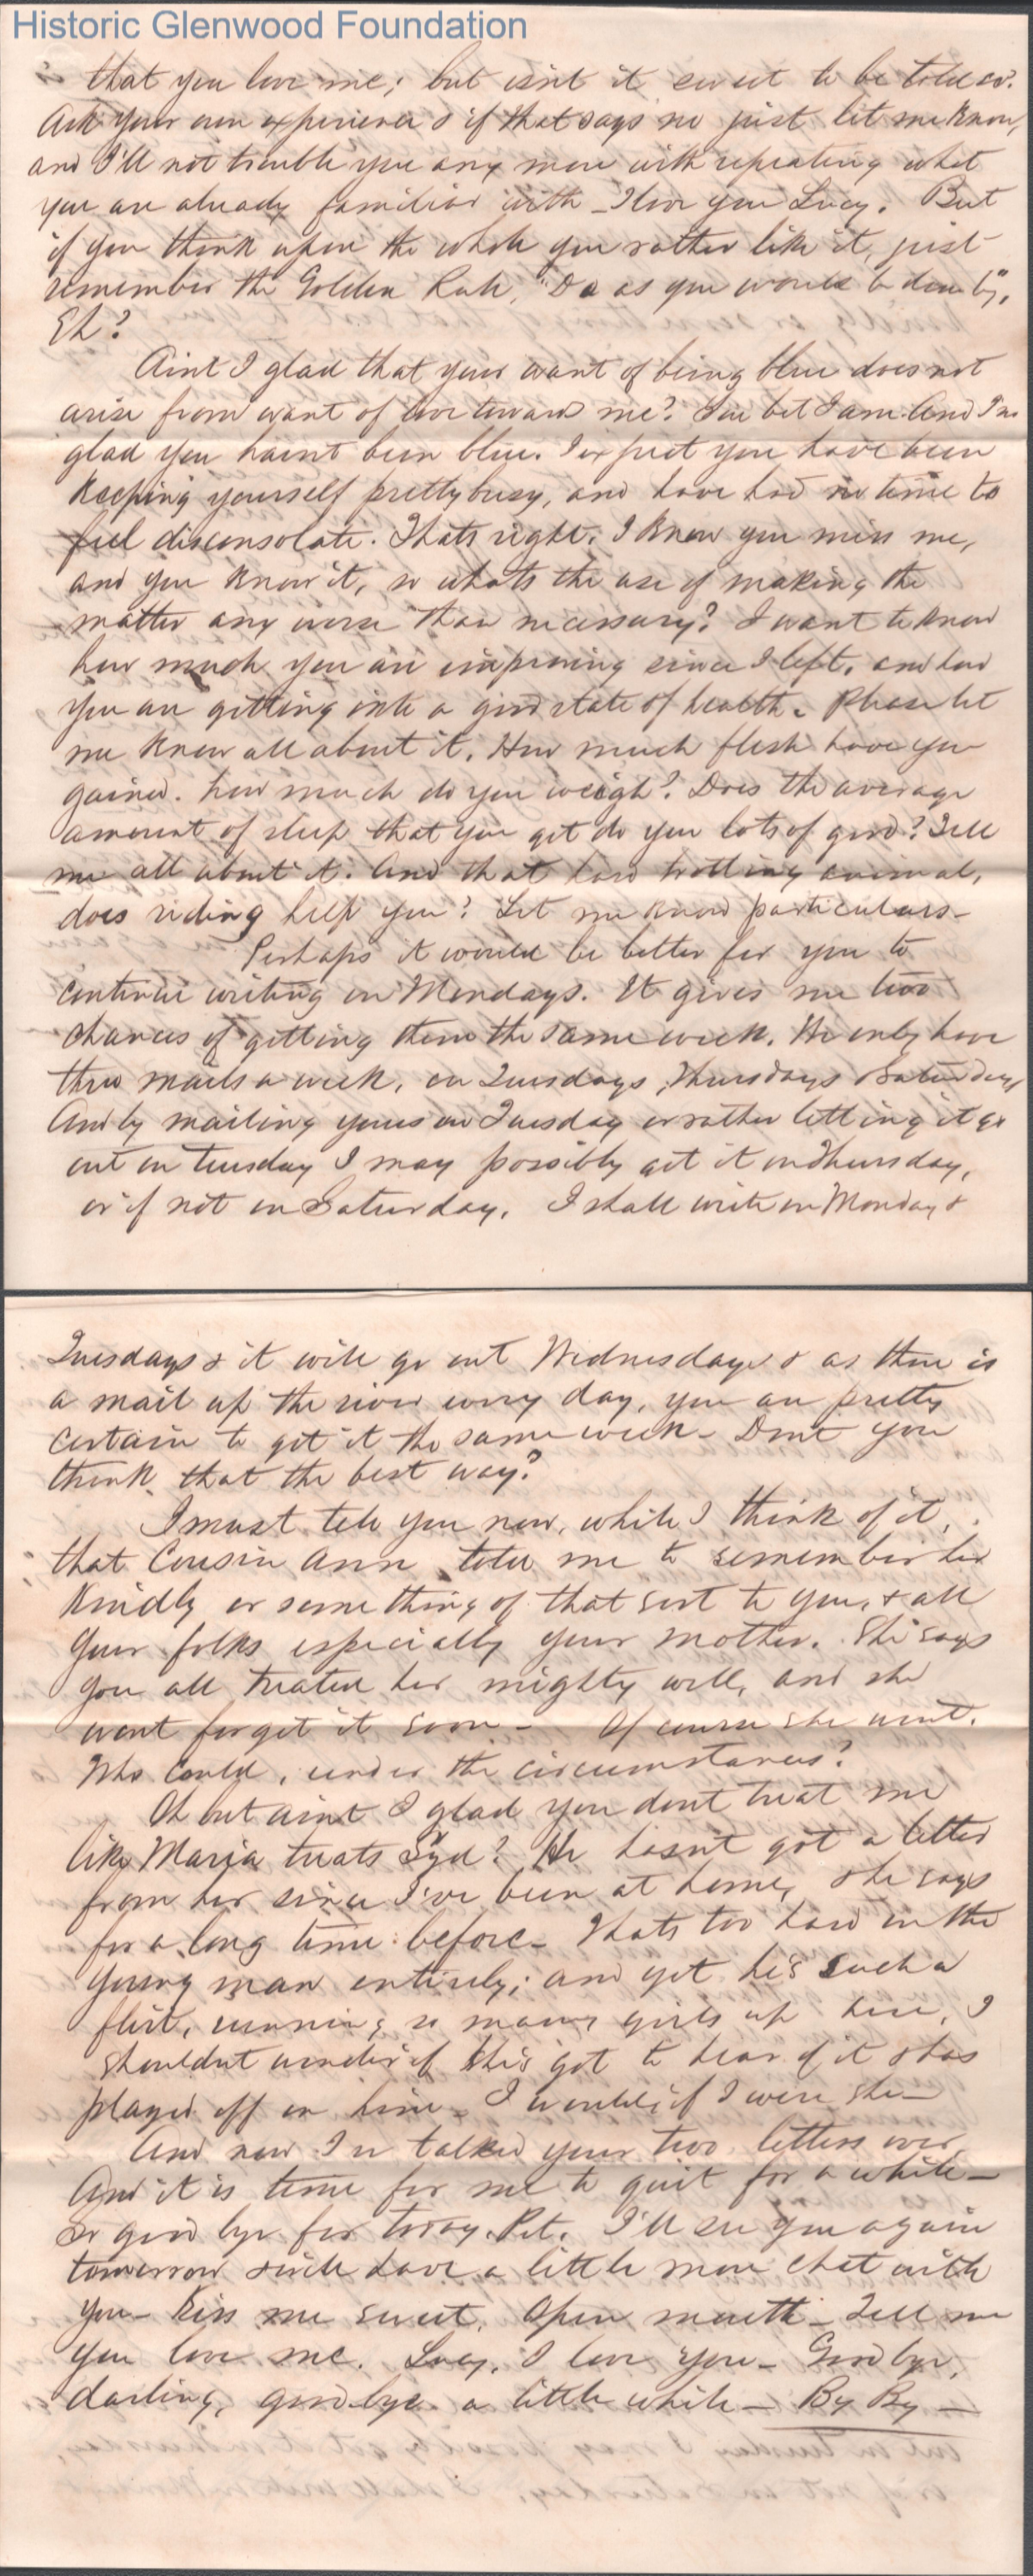 Historic Glenwood Foundation
that you love me; but isnt it sweet to be told so.
Ask your own experience & if that says no just let me know,
and I'll not trouble you any more with repeating what
you are already familiar with – I love you Lucy. But
if you think upon the whole you rather like it, just
remember the Golden Rule, "Do as you would be done by",
Eh?
Aint I glad that your want of being blue does not
arise from want of love toward me? You bet I am. And I'm
glad you haint been blue. I expect you have been
keeping yourself pretty busy, and have had no time to
feel disconsolate. Thats right. I know you miss me,
and you know it, so whats the use of making the
matter any worse than necessary? I want to know
how much you are improving since I left, and how
you are getting into a good state of health. Please let
me know all about it. How much flesh have you
gained. how much do you weigh? Does the average
amount of sleep that you get do you lots of good? Tell
me all about it. And that hard trotting animal,
does riding help you? Let me know particulars –
Perhaps it would be better for you to
continue writing on Mondays. It gives me two
chances of getting them the same week. We only have
three mails a week, on Tuesdays, Thursdays & Saturdays
And by mailing yours on Tuesday or rather letting it go
out on Tuesday I may possibly get it on Thursday,
or if not on Saturday. I shall write on Monday &
Tuesdays & it will go out Wednesdays & as there is
a mail up the river every day, you are pretty
certain to get it the same week – Dont you
think that the best way?
I must tell you now, while I think of it,
that Cousin Ann told me to remember her
kindly or something of that sort to you, & all
your folks especially your mother. She says
you all treated her mighty well, and she
wont forget it soon – Of course she wont.
Who could, under the circumstances?
Oh but aint I glad you dont treat me
like Maria treats Syd? He hasn't got a letter
from her since I've been at home, & he says
for a long time before – Thats too hard on the
young man entirely; and yet he's such a
flirt, running so many girls up here, I
shouldnt wonder if she's got to hear of it & has
played off on him – I would if I were she –
And now I've talked your two letters over
And it is time for me to quit for a while –
So good bye for today. Pet. I'll see you again
tomorrow & will have a little more chat with
you – Kiss me sweet. Open mouth – Tell me
you love me. Lucy, I love you – Good bye,
darling, good-bye a little while – By By –